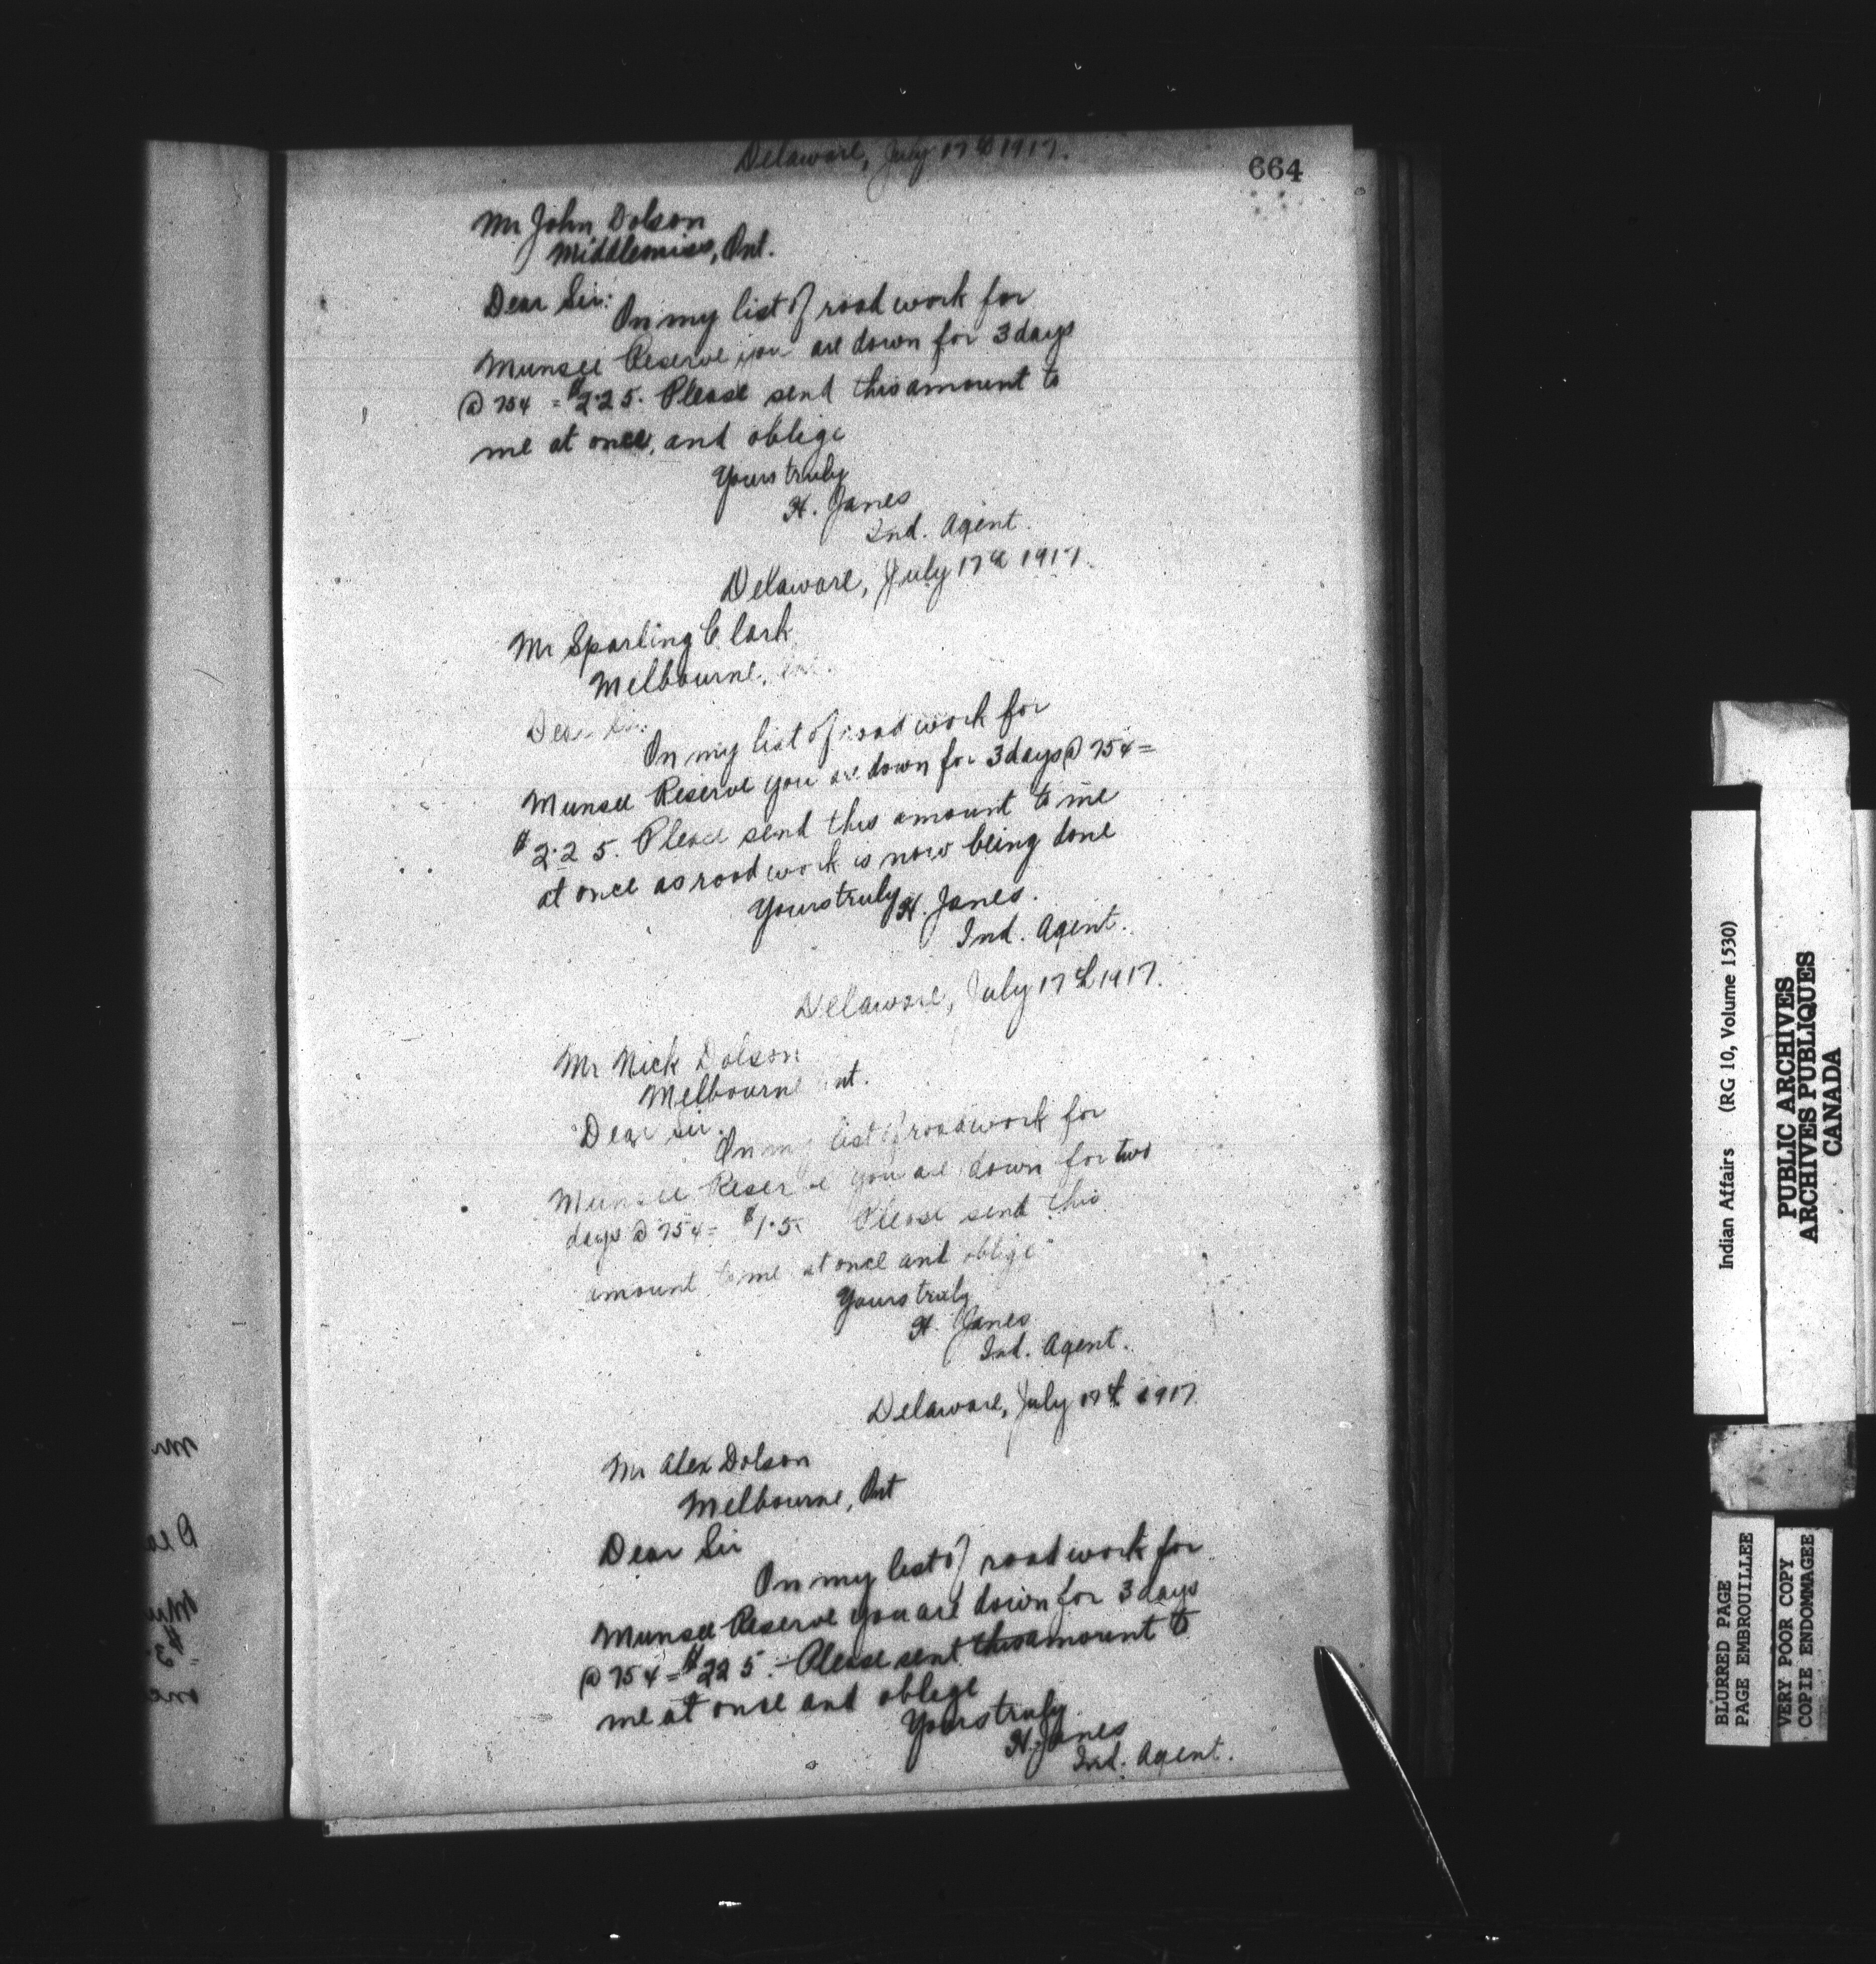 Delaware, July 17th 1917.
664
Mr John Dolson
Middlemiss, Ont.
Dear Sir:
On my list of road work for
Munsee Reserve you are down for 3 days
@ 75¢ = $2.25. Please send this amount to
me at once, and oblige
Yours truly
H. Janes
Ind. Agent.
Delaware, July 17th 1917.
Mr Sparling Clark
Melbourne,
Dear Sir:
On my list of road work for
Munsee Reserve you are down for 3 days @ 75¢ =
$2.25. Please send this amount to me
at once as road work is now being done
Yours truly H. Janes.
Ind. Agent.
Delaware, July 17th 1917.
Mr Nick Dolson
Melbourne Ont.
Dear Sir.
On my list of road work for
Munsee Reserve you are down for two
days @ 75¢ = $1.5 Please send this
amount to me at once and oblige
Yours truly
H. Janes
Ind. Agent.
Delaware, July 17th 1917.
Mr Alex Dolson
Melbourne, Ont
Dear Sir
On my list of road work for
Munsee Reserve you are down for 3 days
@ 75¢ = $225. Please sent this amount to
me at once and oblige
Yours truly
H. Janes
Ind. Agent.
Indian Affairs (RG 10, Volume 1530)
PUBLIC ARCHIVES
ARCHIVES PUBLIQUES
CANADA
BLURRED PAGE
PAGE EMBROUILLEE
VERY POOR COPY
COPIE ENDOMMAGEE